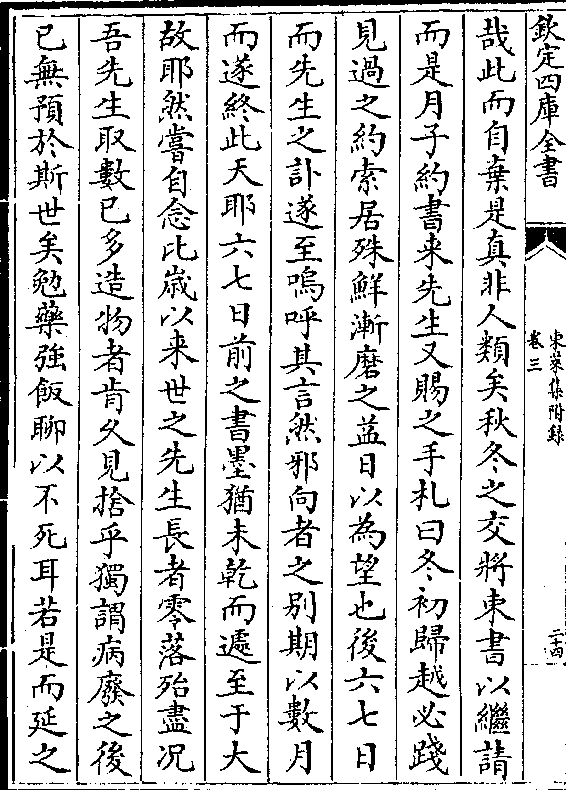 欽定四庫全書
東萊集附錄
卷三
二十四
哉此而自棄是真非人類矣秋冬之交將束書以繼請
而是月子約書来先生又賜之手札曰冬初歸越必踐
見過之約索居殊鮮漸磨之益日以為望也後六七日
而先生之訃遂至嗚呼其言然邪向者之别期以數月
而遂終此天耶六七日前之書墨猶未乾而遽至于大
故耶然嘗自念比歲以来世之先生長者零落殆盡况
吾先生取數已多造物者肯乆見捨乎獨謂病廢之後
已無預於斯世矣勉藥強飯聊以不死耳若是而延之